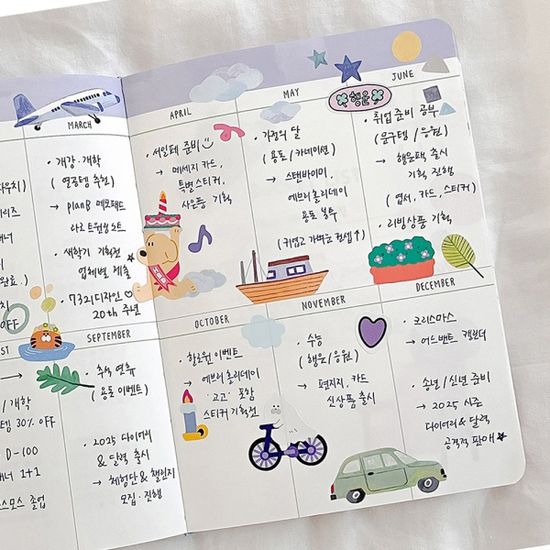 MARCH
• 개강·개학
( 열공템 추천 )
→ planB 메모패드
아코 트윈링 노트
• 새학기 기획전
업체별 제출
• 7321디자인 ♡
20th 주년
APRIL
• 서일페 준비
→ 메세지 카드,
특별 스티커,
사은품 기획
MAY
• 가정의 달
( 용돈 / 카네이션 )
→ 스탠바이미,
에브리 홀리데이
용돈 봉투
( 귀엽고 가벼운 컨셉 ↑ )
행운
JUNE
• 취업 준비 공부
( 문구템 / 응원 )
→ 행운팩 출시
기획 진행
( 엽서, 카드, 스티커 )
• 리빙상품 기획
OFF
SEPTEMBER
• 추석 연휴
( 용돈 이벤트 )
• 2025 다이어리
& 달력 출시
→ 체험단 & 챌린지
모집·진행
OCTOBER
• 할로윈 이벤트
→ 에브리 홀리데이
'고고' 포함
스티커 기획전
NOVEMBER
• 수능
( 행운 / 응원 )
→ 편지지, 카드
신상품 출시
DECEMBER
• 크리스마스
→ 어드밴트 캘린더
• 송년 / 신년 준비
→ 2025 시즌
다이어리 & 달력
공격적 판매 ★
ST
/ 개학
템 30% OFF
D-100
1+1
코스모스 졸업